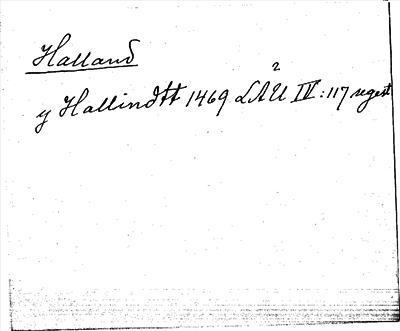 Halland
2
y Hallindtt 1469 LAU IV:117 regest